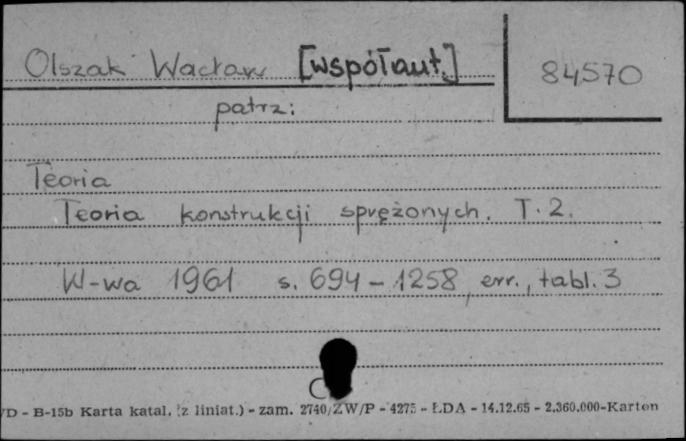 Olszak Wacław [współaut.] 84570
patrz:
Teoria
Teoria konstrukcji sprężonych. T. 2.
W-wa 1961 s. 694-1258, err., tabl. 3
C
/D - B-15b Karta katal. (z liniat.) - zam. 2740/ZW/P - 4275 - ŁDA - 14.12.65 - 2.360.000-Karton